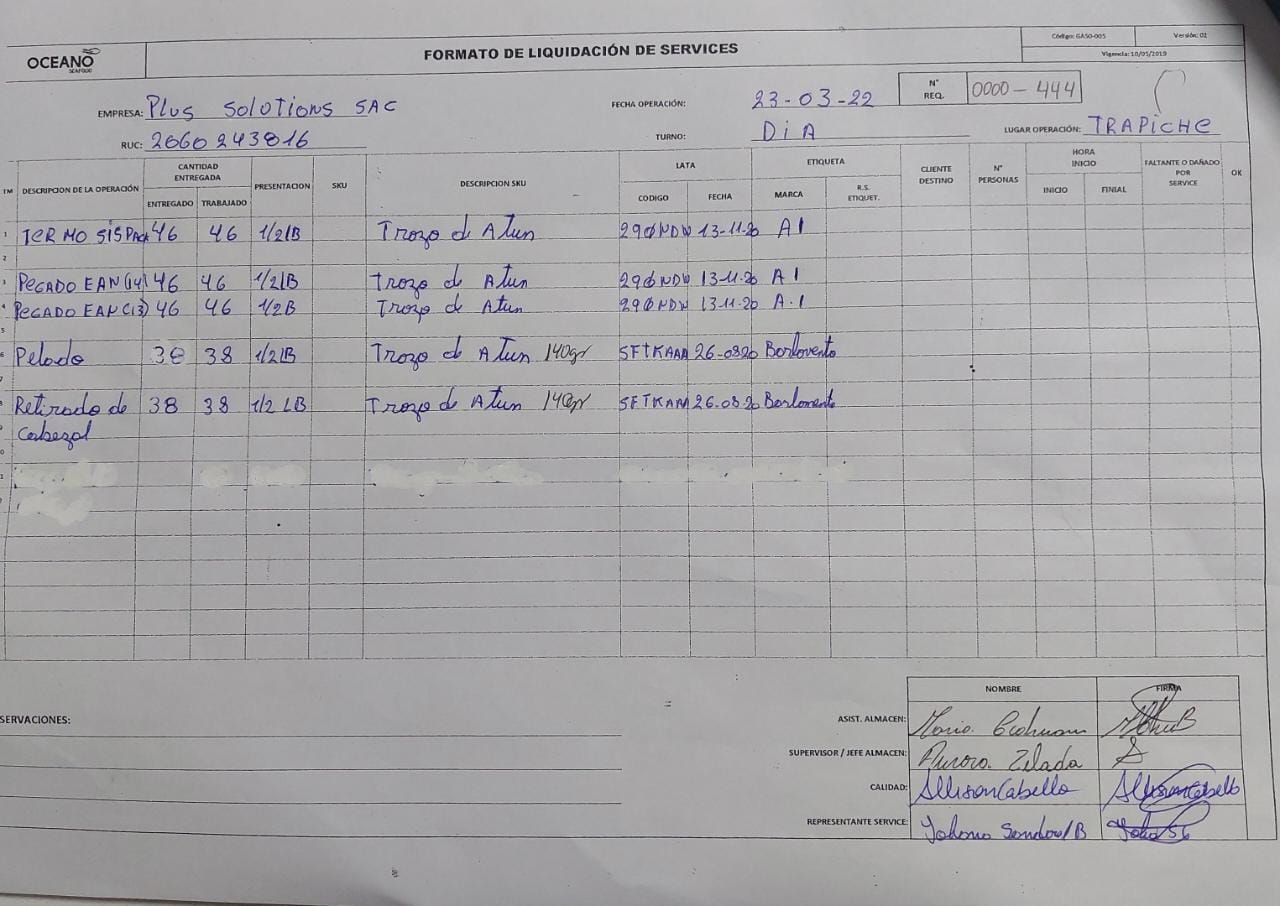 OCEANO
SEAFOOD
FORMATO DE LIQUIDACIÓN DE SERVICES
Código: GASO-005 Versión: 02
Vigencia: 10/05/2019
EMPRESA: Plus Solutions SAC
FECHA OPERACIÓN: 23-03-22
N° REQ. 0000-444
RUC: 20602438016
TURNO: DiA
LUGAR OPERACIÓN: TRAPiCHE
TM DESCRIPCION DE LA OPERACIÓN CANTIDAD ENTREGADA ENTREGADO TRABAJADO PRESENTACION SKU DESCRIPCION SKU LATA CODIGO FECHA ETIQUETA MARCA R.S. ETIQUET. CLIENTE DESTINO N° PERSONAS HORA INICIO INICIO FINIAL FALTANTE O DAÑADO POR SERVICE OK
1 TERMO SISPACK 46 46 1/2lB Trozo de Atun 290NDW 13-11-20 A1
2
3 PEGADO EAN(14) 46 46 1/2lB Trozo de Atun 290NDW 13-11-20 A1
4 PEGADO EAN(13) 46 46 1/2B Trozo de Atun 290NDW 13-11-20 A.1
5
6 Pelado 38 38 1/2lB Trozo de Atun 140gr SFTKAAA 26-0820 Barlovento
7
8 Retirado de 38 38 1/2 LB Trozo de Atun 140gr SFTKAAA 26.08.20 Barlovento
9 Cabezal
0
1
NOMBRE FIRMA
SERVACIONES:
ASIST. ALMACEN: Mario
SUPERVISOR / JEFE ALMACEN: Aurora. Zelada
CALIDAD: Allison Cabello Allison Cabello
REPRESENTANTE SERVICE: